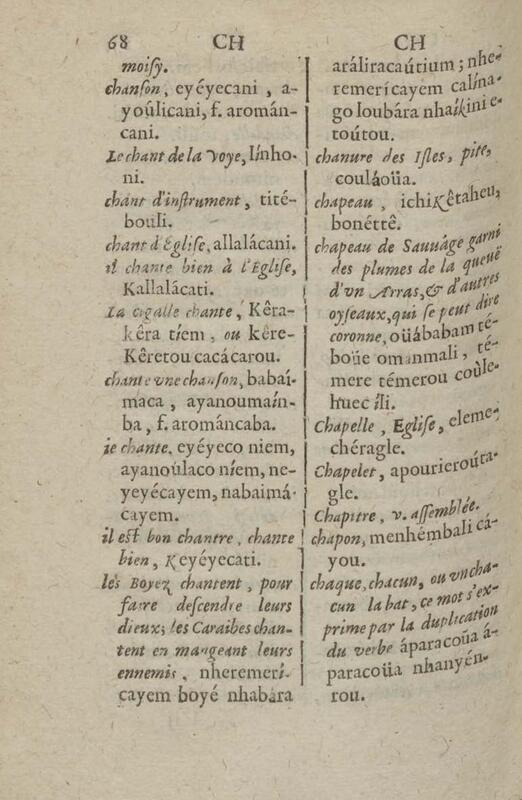 68 CH
moisy.
chanson, eyéyecani, a-
yoúlicani, f. aromán-
cani.
Le chant de la voye, línho-
ni.
chant d'instrument, tité-
bouli.
chant d'Eglise, allalácani.
il chante bien à l'Eglise,
Kallalácati.
La cigalle chante, Kêra-
kêra tíem, ou kêre-
Kêretou cacácarou.
chante vne chanson, babaí-
maca, ayanoumaín-
ba, f. arománcaba.
ie chante, eyéyeco niem,
ayanoúlaco níem, ne-
yeyécayem, nabaimá-
cayem.
il est bon chantre, chante
bien, Keyéyecati.
les Boyez chantent, pour
faire descendre leurs
dieux; les Caraibes chan-
tent en mangeant leurs
ennemis, nheremerí-
cayem boyé nhabára
CH
aráliracaútium; nhe-
remerícayem calína-
go loubára nhaíkini e-
toútou.
chanure des Isles, pite,
couláoüa.
chapeau, ichiKêtaheu,
bonéttê.
chapeau de Sauuáge garni
des plumes de la queuë
d'vn Arras, & d'autres
oyseaux, qui se peut dire
coronne, oüábabam té-
boüe omanmali, té-
mere témerou coùle-
huec íli.
Chapelle, Eglise, eleme-
chéragle.
Chapelet, apourieroúta-
gle.
Chapitre, v. assemblée.
chapon, menhémbali cá-
you.
chaque, chacun, ou vn cha-
cun la bat, ce mot s'ex-
prime par la duplication
du verbe áparacoüa á-
paracoüa nhanyén-
rou.